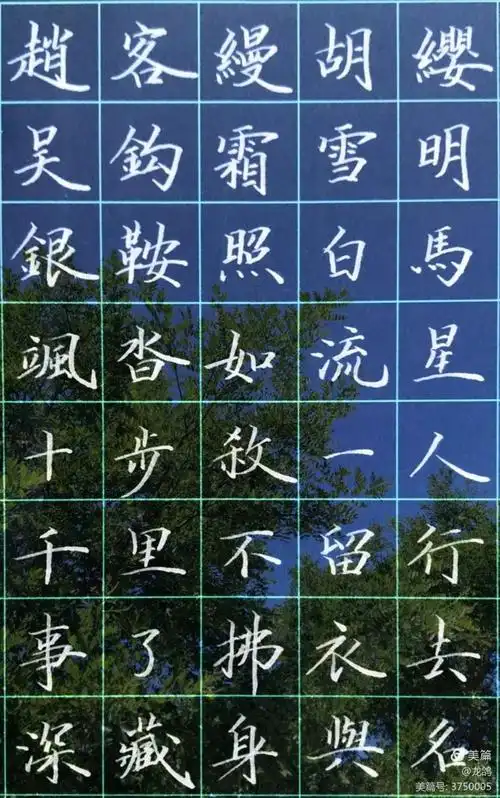 趙客縵胡纓
吴鈎霜雪明
銀鞍照白馬
颯沓如流星
十步殺一人
千里不留行
事了拂衣去
深藏身與名
美篇
@龙鸽
美篇号: 3750005